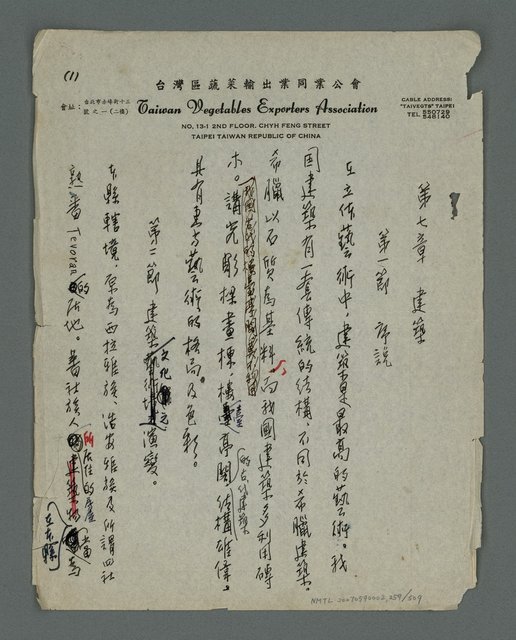 (1)
台灣區蔬菜輸出業同業公會
會址：台北市赤峰街十三號之一(二樓)
Taiwan Vegetables Exporters Association
CABLE ADDRESS:
"TAIVEGTS" TAIPEI
TEL 550729
548140
NO. 13-1 2ND FLOOR. CHYH FENG STREET
TAIPEI TAIWAN REPUBLIC OF CHINA
第七章 建築
第一節 序說
在立体藝術中，建築算是最高的藝術。我
国建築有一套傳統的结構，不同於希臘建築。
希臘以石質為基料，而我國的古代建築多利用磚
木。講究彫樑畫棟，樓臺亭閣，结構雄偉，
具有東方藝術的格局及色彩。
第二節 建築文化演變。
本縣轄境，原為西拉雅族、洛安雅族及所謂四社
熟番 Tevoran 的居地。番社族人所居住的屋
在本縣
NMTL 20070590002,259/509